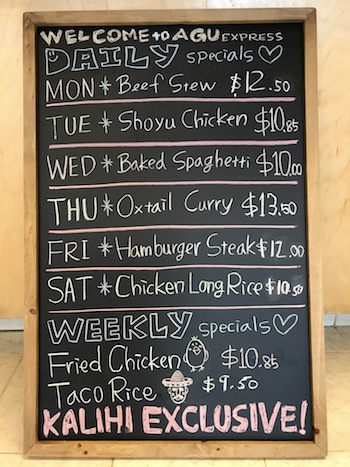 WELCOME to AGU EXPRESS
DAILY specials
MON * Beef Stew $12.50
TUE * Shoyu Chicken $10.85
WED * Baked Spaghetti $10.00
THU * Oxtail Curry $13.50
FRI * Hamburger Steak $12.00
SAT * Chicken Long Rice $10.50
WEEKLY specials
Fried Chicken $10.85
Taco Rice $9.50
KALIHI EXCLUSIVE!